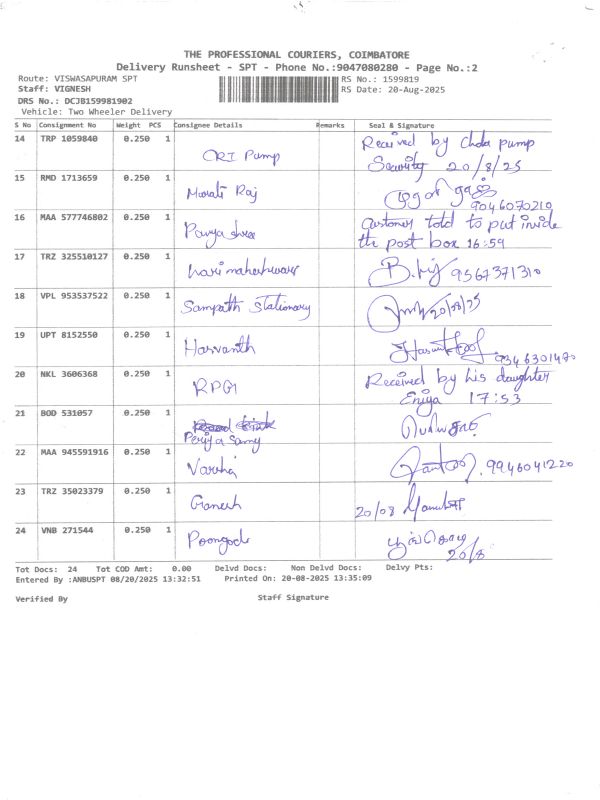 THE PROFESSIONAL COURIERS, COIMBATORE
Delivery Runsheet - SPT - Phone No.:9047080280 - Page No.:2
Route: VISWASAPURAM SPT
RS No.: 1599819
Staff: VIGNESH
RS Date: 20-Aug-2025
DRS No.: DCJB159981902
Vehicle: Two Wheeler Delivery
S No Consignment No Weight PCS Consignee Details Remarks Seal & Signature
14 TRP 1059840 0.250 1 CRI Pump Received by Chola pump
Security 20/8/25
15 RMD 1713659 0.250 1 Murali Raj
9046070210
16 MAA 577746802 0.250 1 Customer told to put inside
the post box 16:59
17 TRZ 325510127 0.250 1 9567371310
18 VPL 953537522 0.250 1 Sampath Stationary 20/08/25
19 UPT 8152550 0.250 1 Harvanth
9346301480
20 NKL 3606368 0.250 1 RPG Received by his daughter
Eniya 17:53
21 BOD 531057 0.250 1
Periya Samy
22 MAA 945591916 0.250 1 9946041220
23 TRZ 35023379 0.250 1 Ganesh 20/08
24 VNB 271544 0.250 1 Poongodi பூங்கொடி
20/8
Tot Docs: 24 Tot COD Amt: 0.00 Delvd Docs: Non Delvd Docs: Delvy Pts:
Entered By :ANBUSPT 08/20/2025 13:32:51 Printed On: 20-08-2025 13:35:09
Verified By Staff Signature